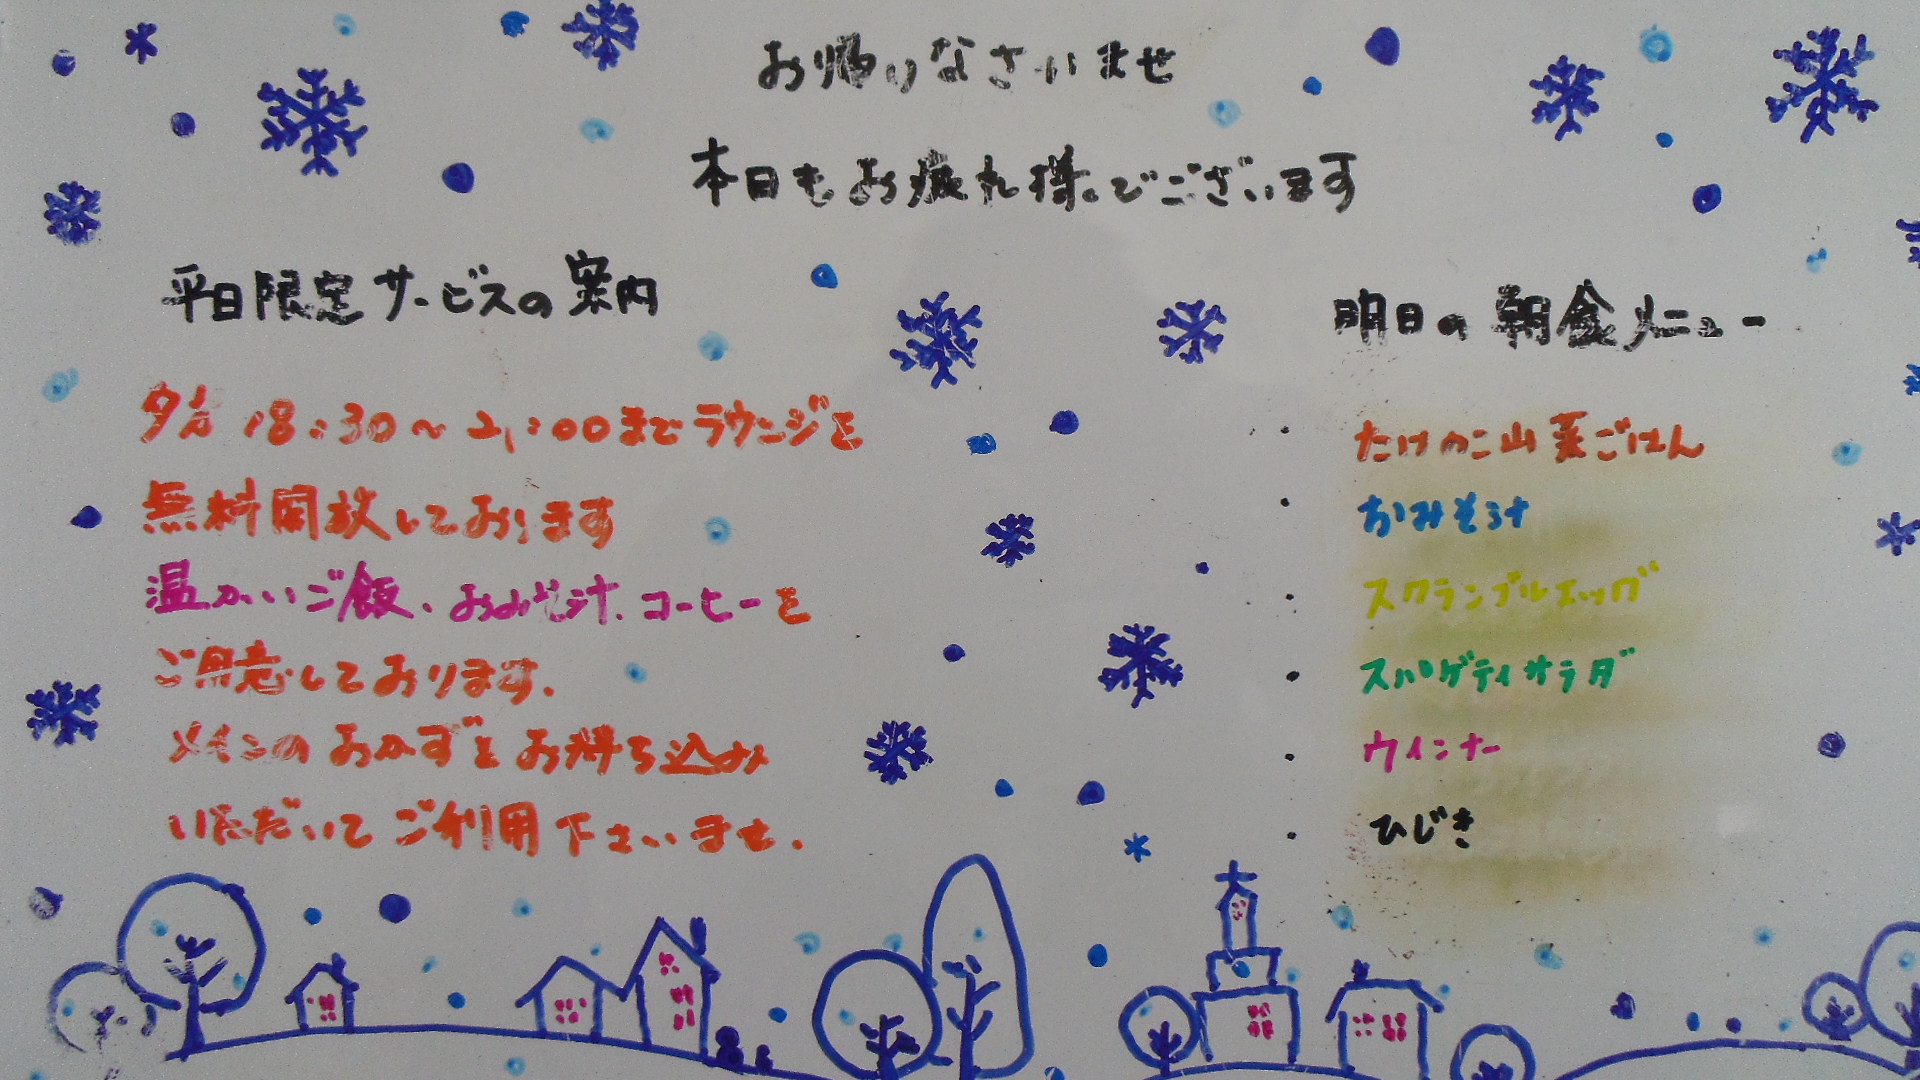 お帰りなさいませ
本日もお疲れ様でございます
平日限定サービスの案内
夕方 18:30～21:00までラウンジを
無料開放しております
温かいご飯、おみそ汁、コーヒーを
ご用意しております。
メインのおかずをお持ち込み
いただいてご利用下さいませ。
明日の朝食メニュー
・たけのこ山菜ごはん
・おみそ汁
・スクランブルエッグ
・スパゲティサラダ
・ウインナー
・ひじき